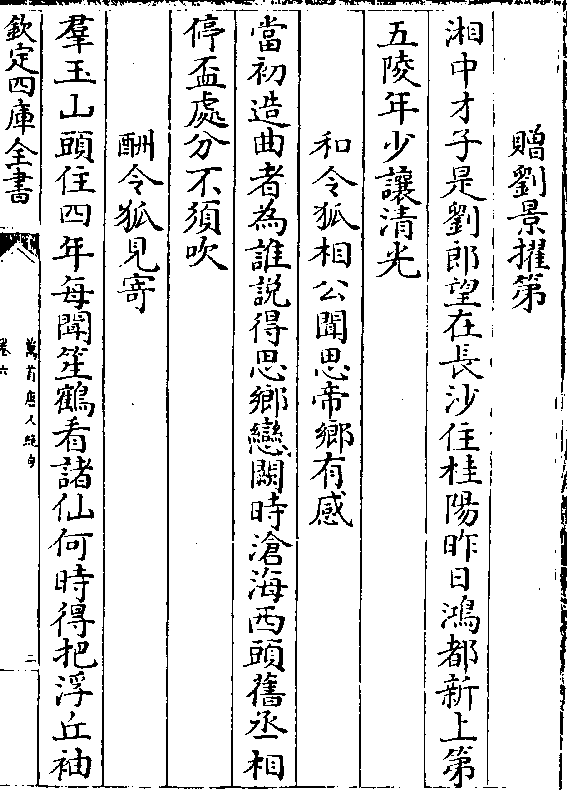 贈劉景擢第
湘中才子是劉郎望在長沙住桂陽昨日鴻都新上第
五陵年少讓清光
和令狐相公聞思帝鄉有感
當初造曲者為誰說得思鄉戀闕時滄海西頭舊丞相
停盃處分不須吹
酬令狐見寄
羣玉山頭住四年每聞笙鶴看諸仙何時得把浮丘袖
欽定四庫全書
萬首唐人絕句
卷六
二